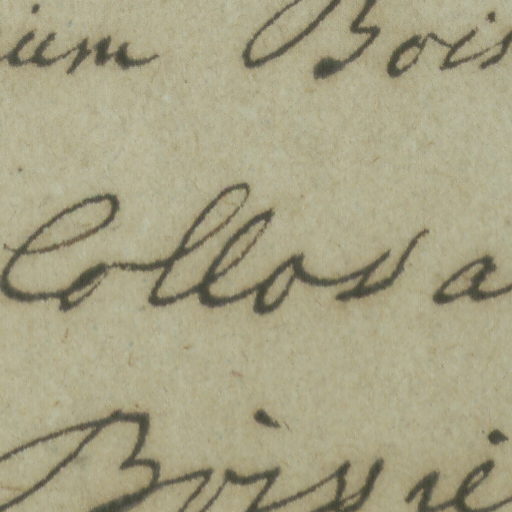 ium Bois
Collos a
Boissie